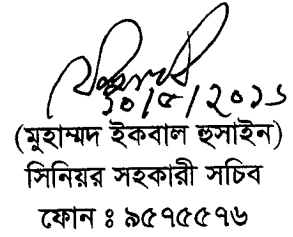 ১০/৫/২০১১
(মুহাম্মদ ইকবাল হুসাইন)
সিনিয়র সহকারী সচিব
ফোন ঃ ৯৫৭৫৫৭৬